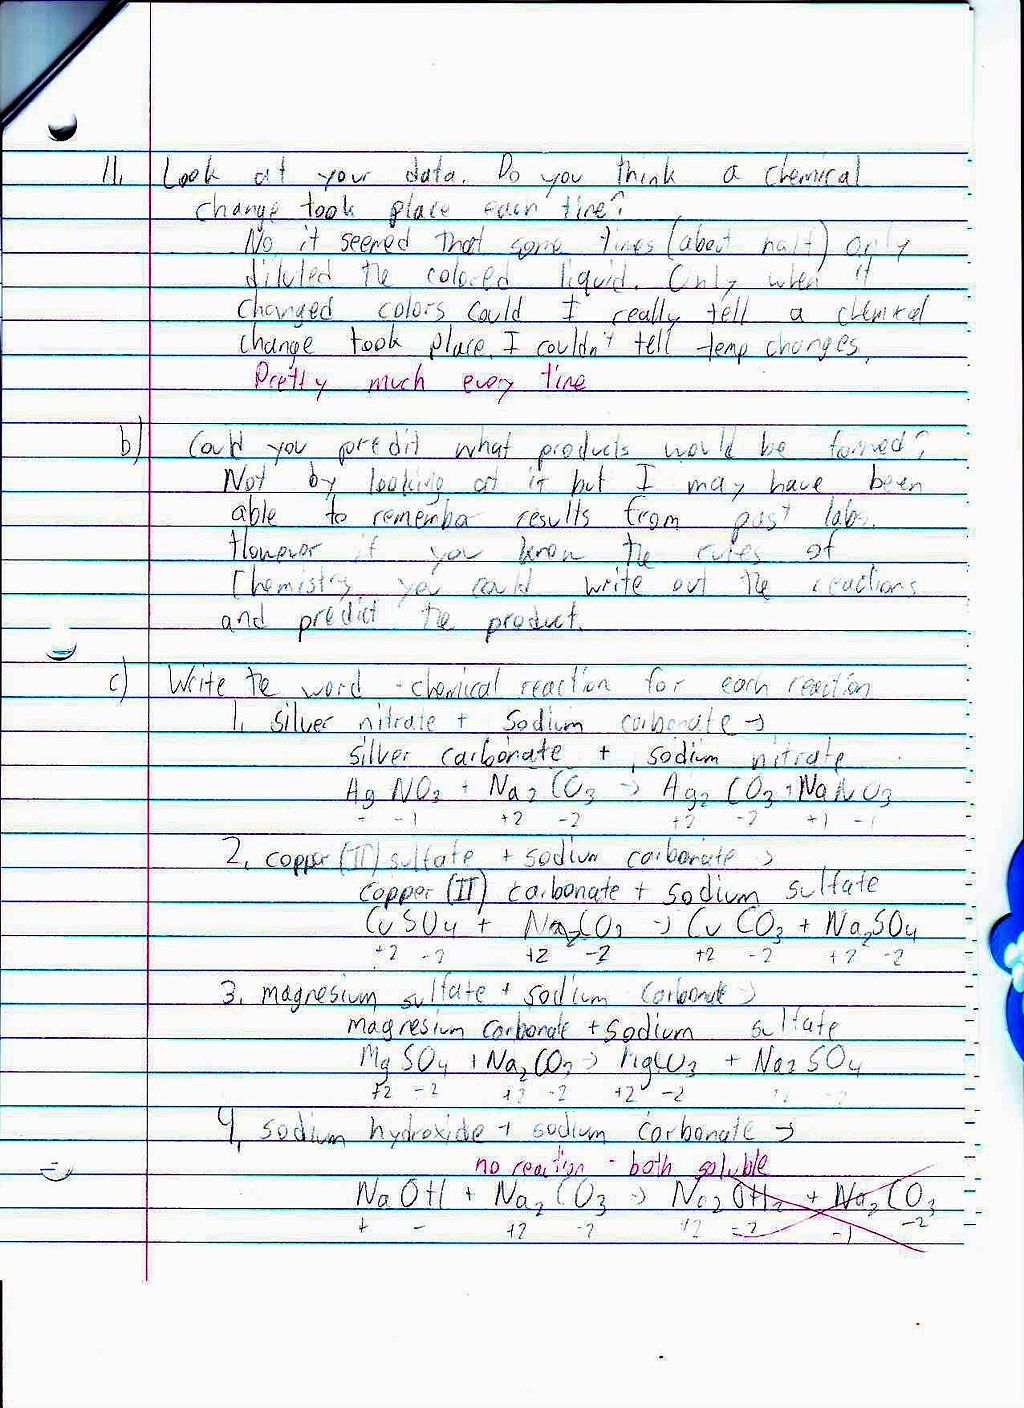 11. Look at your data. Do you think a chemical
change took place each time?
No it seemed that some times (about half) only
diluted the colored liquid. Only when it
changed colors could I really tell a chemical
change took place. I couldn't tell temp changes.
Pretty much every time
b) Could you predit what products would be formed?
Not by looking at it but I may have been
able to remember results from past labs.
However if you know the rules of
Chemistry you could write out the reactions
and predict the product.
c) Write the word - chemical reaction for each reaction
1. silver nitrate + sodium carbonate →
silver carbonate + sodium nitrate
Ag NO3 + Na2 CO3 → Ag2 CO3 + NaNO3
+ -1 +2 -2 +2 -2 +1 -1
2. copper (II) sulfate + sodium carbonate →
copper (II) carbonate + sodium sulfate
CuSO4 + Na2CO3 → CuCO3 + Na2SO4
+2 -2 +2 -2 +2 -2 +2 -2
3. magnesium sulfate + sodium carbonate →
magnesium carbonate + sodium sulfate
MgSO4 + Na2CO3 → MgCO3 + Na2SO4
+2 -2 +2 -2 +2 -2
4. sodium hydroxide + sodium carbonate →
no reaction - both soluble
NaOH + Na2CO3 → Na2OH2 + Na2CO3
+ - +2 -2 +2 -2 -1 -2